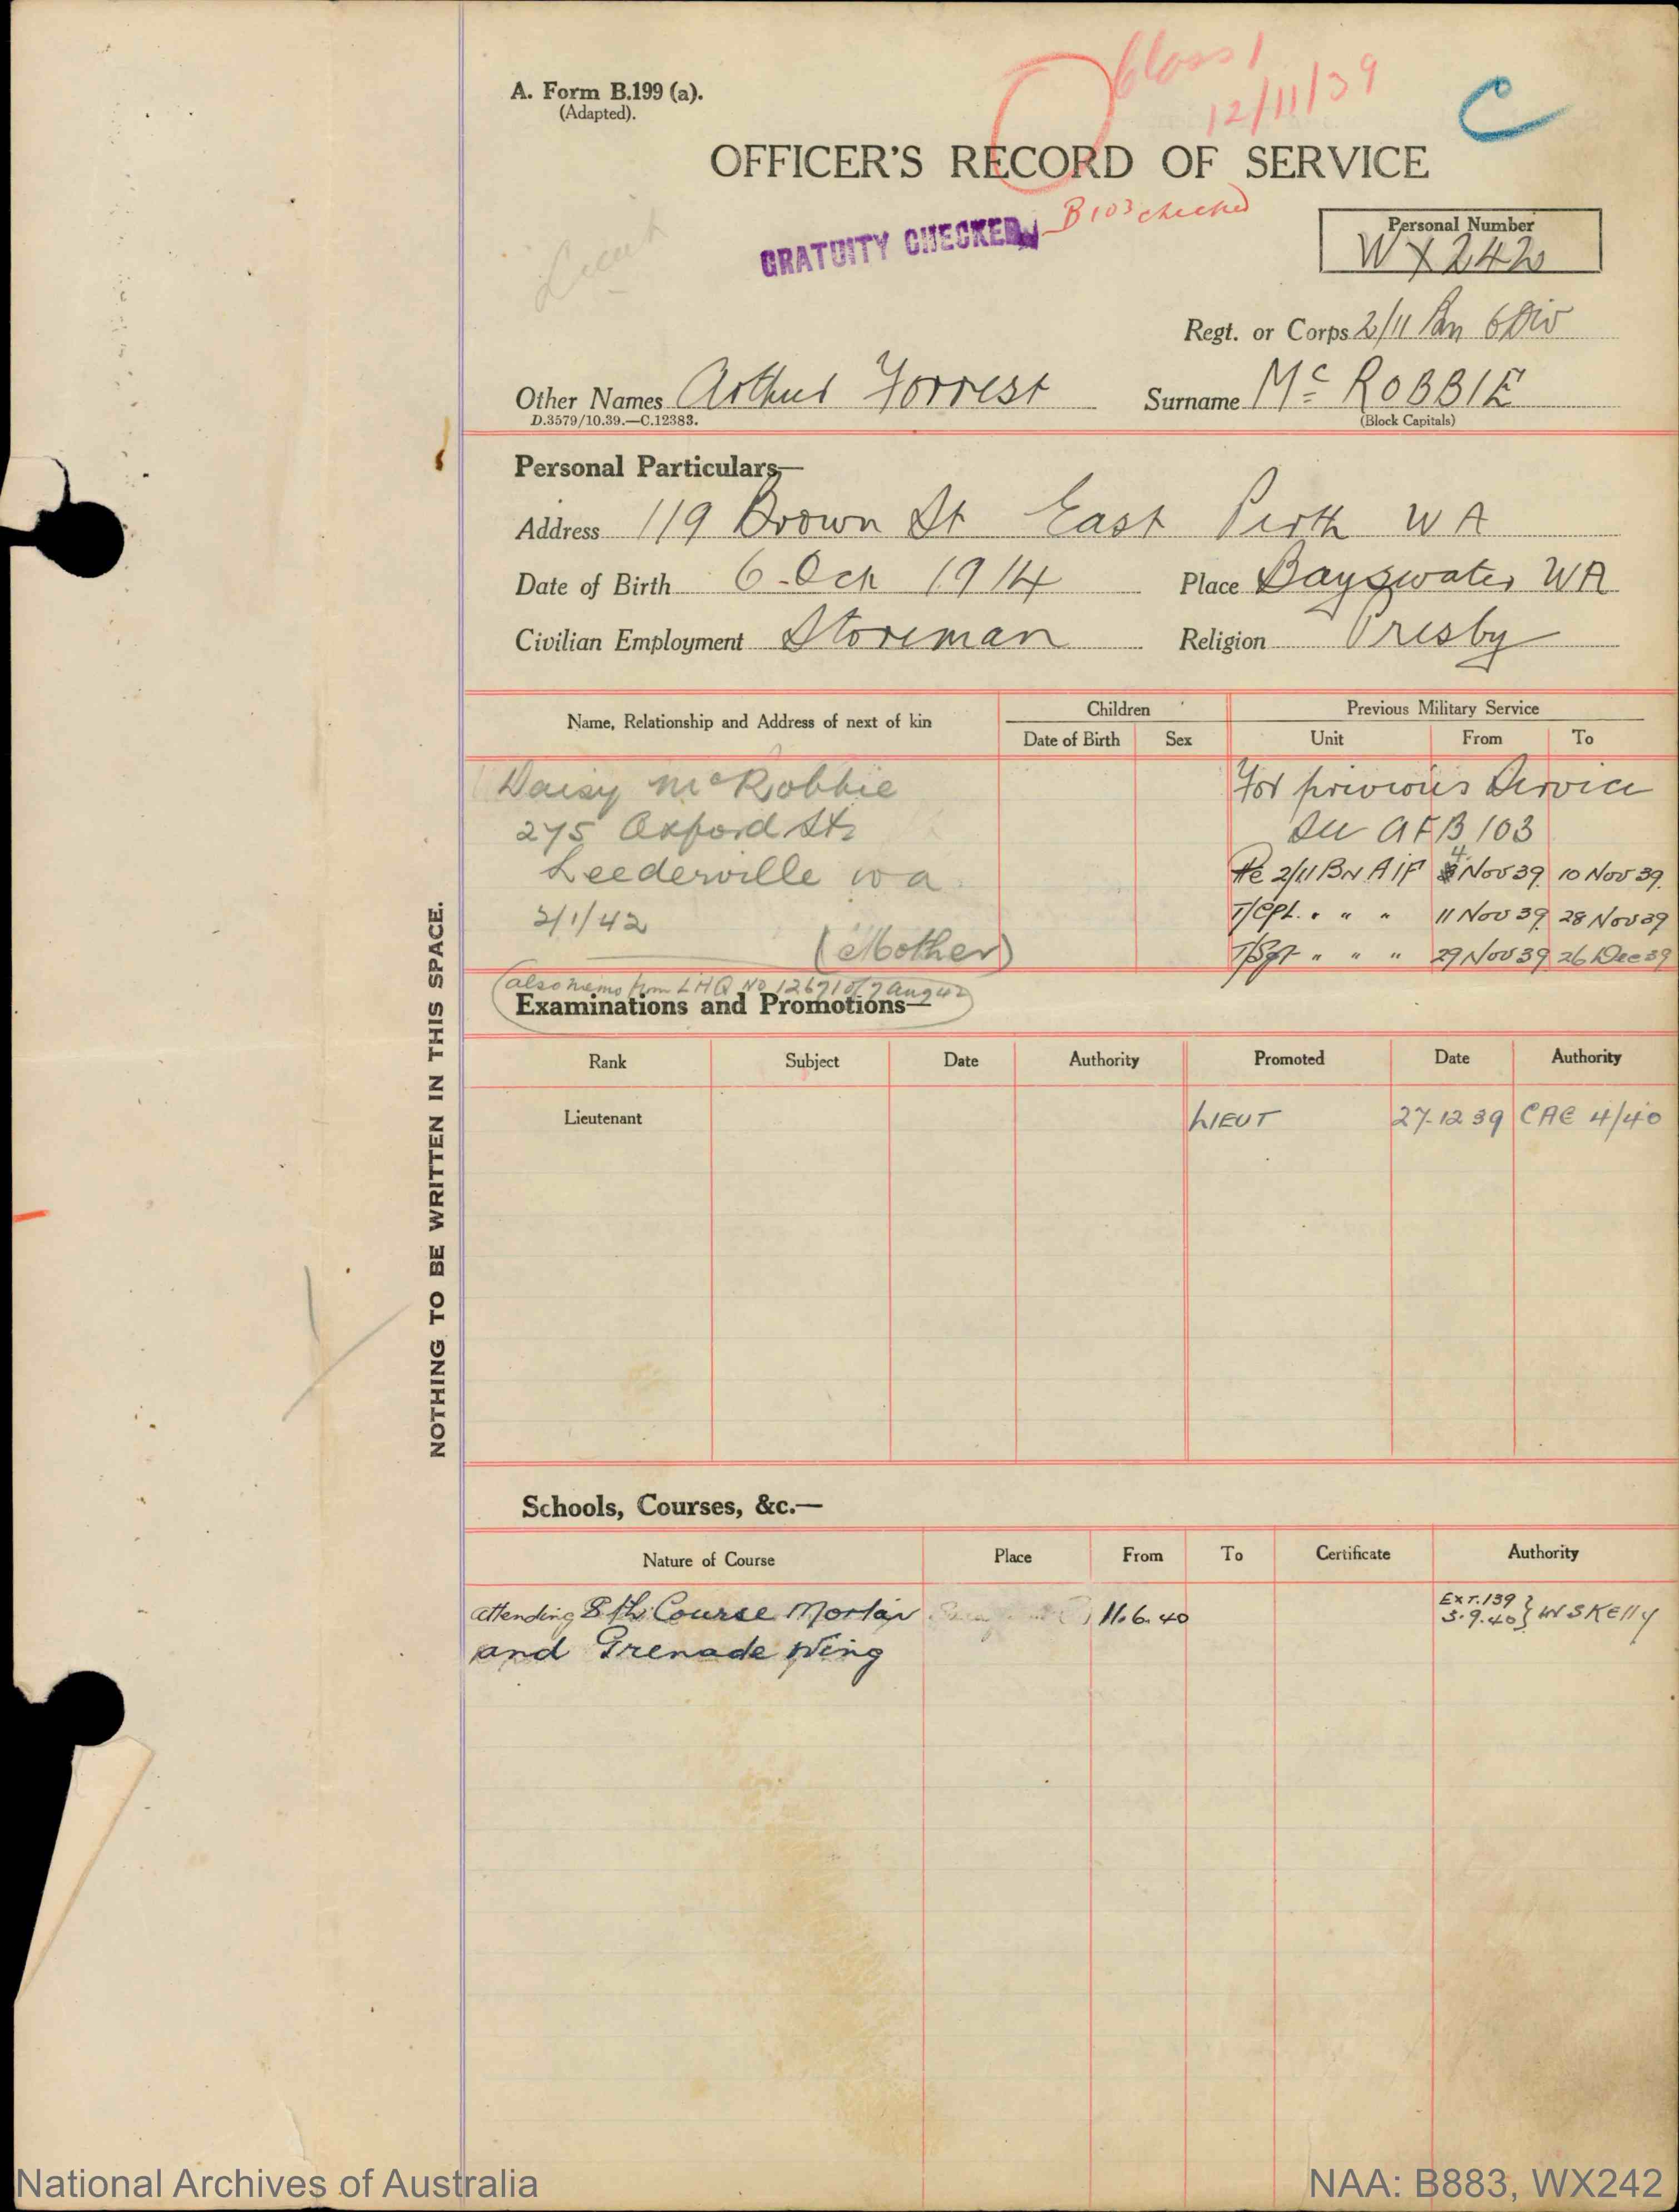 Class 1
12/11/39
C
A. Form B.199 (a).
(Adapted).
OFFICER'S RECORD OF SERVICE
Lieut
GRATUITY CHECKED
B103 checked
Personal Number
WX242
Regt. or Corps 2/11 Bn 6 Div
Other Names Arthur Forrest Surname McROBBIE
D.3579/10.39.—C.12383. (Block Capitals)
Personal Particulars—
Address 119 Brown St East Perth WA
Date of Birth 6 Oct 1914 Place Bayswater WA
Civilian Employment Storeman Religion Presby
Name, Relationship and Address of next of kin Children Previous Military Service
Date of Birth Sex Unit From To
Daisy McRobbie For previous Service
275 Oxford St See AFB 103
Leederville WA Pte 2/11 BN AIF 4 Nov 39 10 Nov 39.
2/1/42 T/Cpl. " " " 11 Nov 39 28 Nov 39
(Mother) T/Sgt " " " 29 Nov 39 26 Dec 39
(also memo from LHQ No 12671 of 7 Aug 42)
Examinations and Promotions—
Rank Subject Date Authority Promoted Date Authority
Lieutenant LIEUT 27.12.39 CAE 4/40
Schools, Courses, &c.—
Nature of Course Place From To Certificate Authority
attending 8th Course Mortar 11.6.40 Ext. 139 3.9.40} W S Kelly
and Grenade Wing
NOTHING TO BE WRITTEN IN THIS SPACE.
National Archives of Australia NAA: B883, WX242